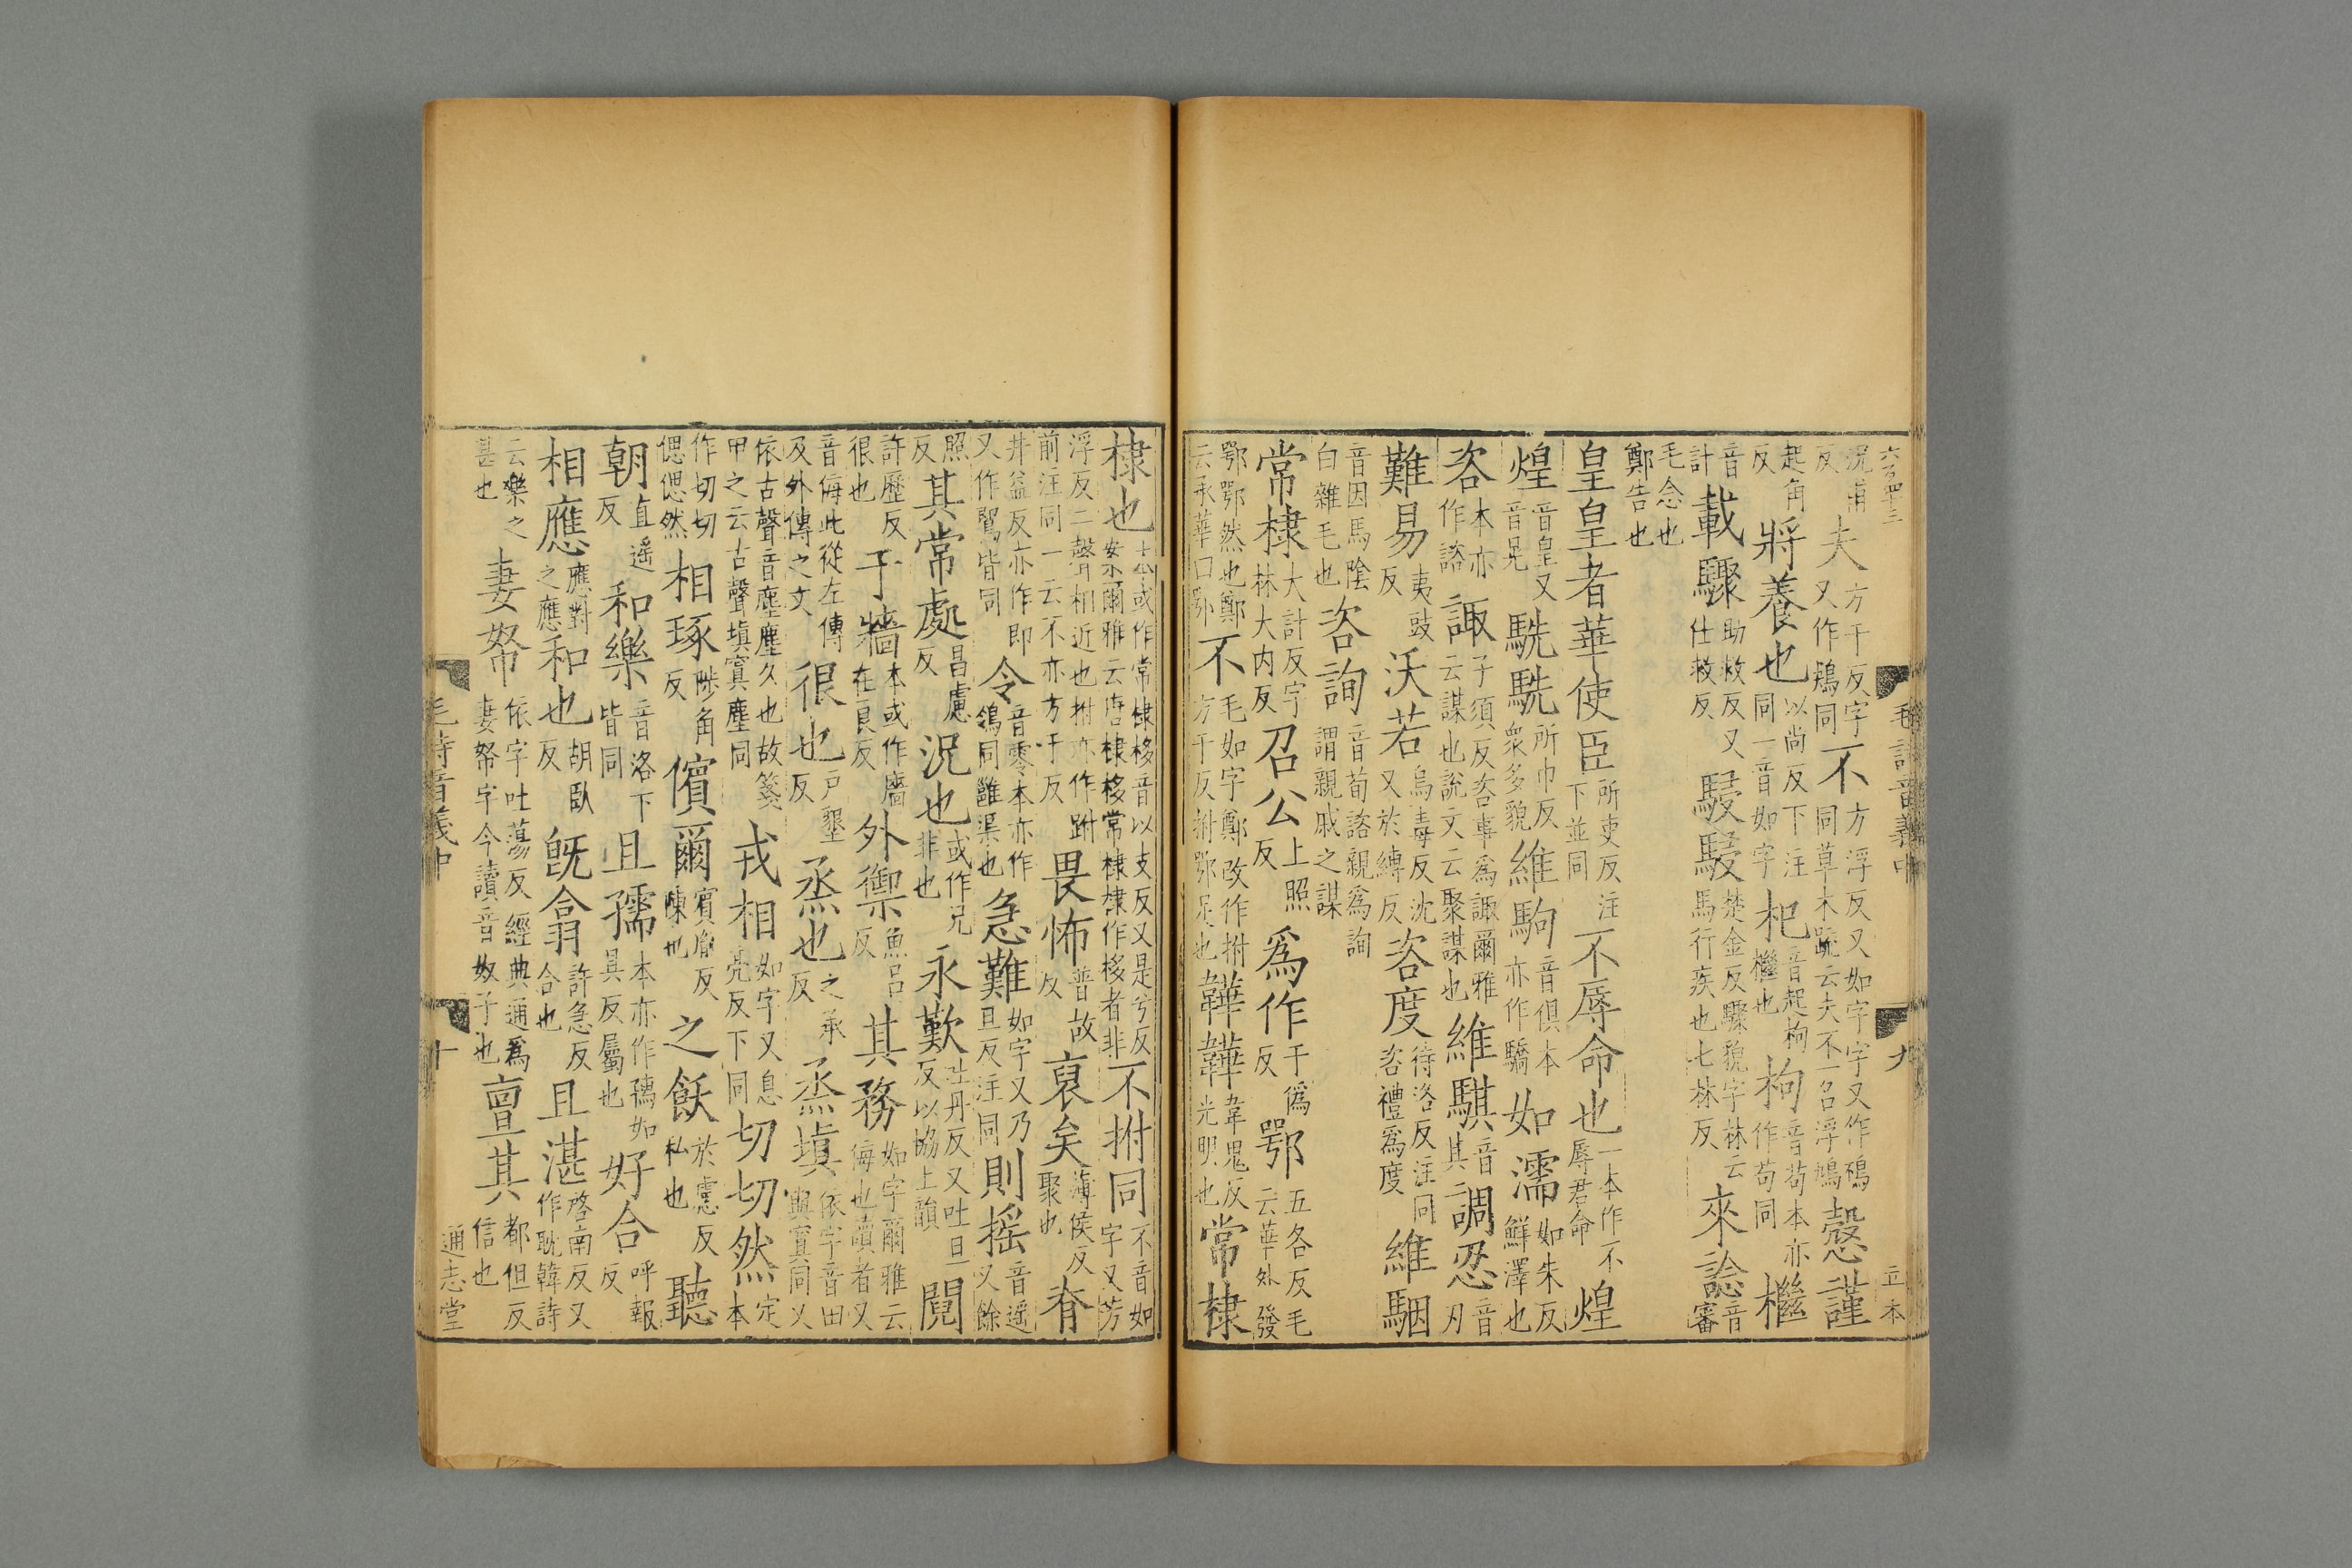 況甫反夫方于反字又作鳺同不方浮反又如字字又作鴀同草木疏云夫不一名浮鳩慤謹
起角反將養也以尚反下注同一音如字杞音起枸檵也枸音苟本亦作苟同檵
音計載驟助救反又仕救反駸駸楚金反驟貌字林云馬行疾也七林反來諗音審
毛念也鄭告也
皇皇者華使臣所吏反注下並同不辱命也一本作不辱君命煌
煌音皇又音晃駪駪所巾反衆多貌維駒音俱本亦作驕如濡如朱反鮮澤也
咨本亦作諮諏子須反咨事爲諏爾雅云謀也說文云聚謀也維騏音其調忍音刃
難易夷豉反沃若烏毒反沈又於縛反咨度待洛反注同咨禮爲度維駰
音因馬陰白雜毛也咨詢音荀諮親爲詢謂親戚之謀
常棣大計反字林大內反召公上照反爲作于僞反鄂五各反毛云華外發
鄂鄂然也鄭云承華曰鄂不毛如字鄭改作拊方于反拊鄂足也韡韡韋鬼反光明也常棣
毛詩音義中
九
棣也本或作常棣栘音以支反又是兮反案爾雅云唐棣栘常棣棣作栘者非不拊同不音如字又芳
浮反二聲相近也拊亦作跗前注同一云不亦方于反畏怖普故反裒矣薄侯反聚也脊
井益反亦作即又作鶺皆同令音零本亦作鴒同雝渠也急難如字又乃旦反注同則搖音遥又餘
照反其常處昌慮反況也或作兄非也永歎吐丹反又吐旦反以協上韻鬩
許歷反很也于牆本或作廧在良反外禦魚呂反其務如字爾雅云侮也讀者又
音侮此從左傳及外傳之文很也戶墾反烝也之承反烝塡依字音田與寘同又
依古聲音塵塵久也故箋申之云古聲塡寘塵同戎相如字又息亮反下同切切然定本
作切切偲偲然相琢陟角反儐爾賓胤反陳也之飫於慮反私也聽
朝直遥反和樂音洛下皆同且孺本亦作𤣓如具反屬也好合呼報反
相應應對之應和也胡臥反旣翕許急反合也且湛荅南反又作耽韓詩
云樂之甚也妻帑依字吐蕩反經典通爲妻帑字今讀音奴子也亶其都但反信也
毛詩音義中
十
通志堂